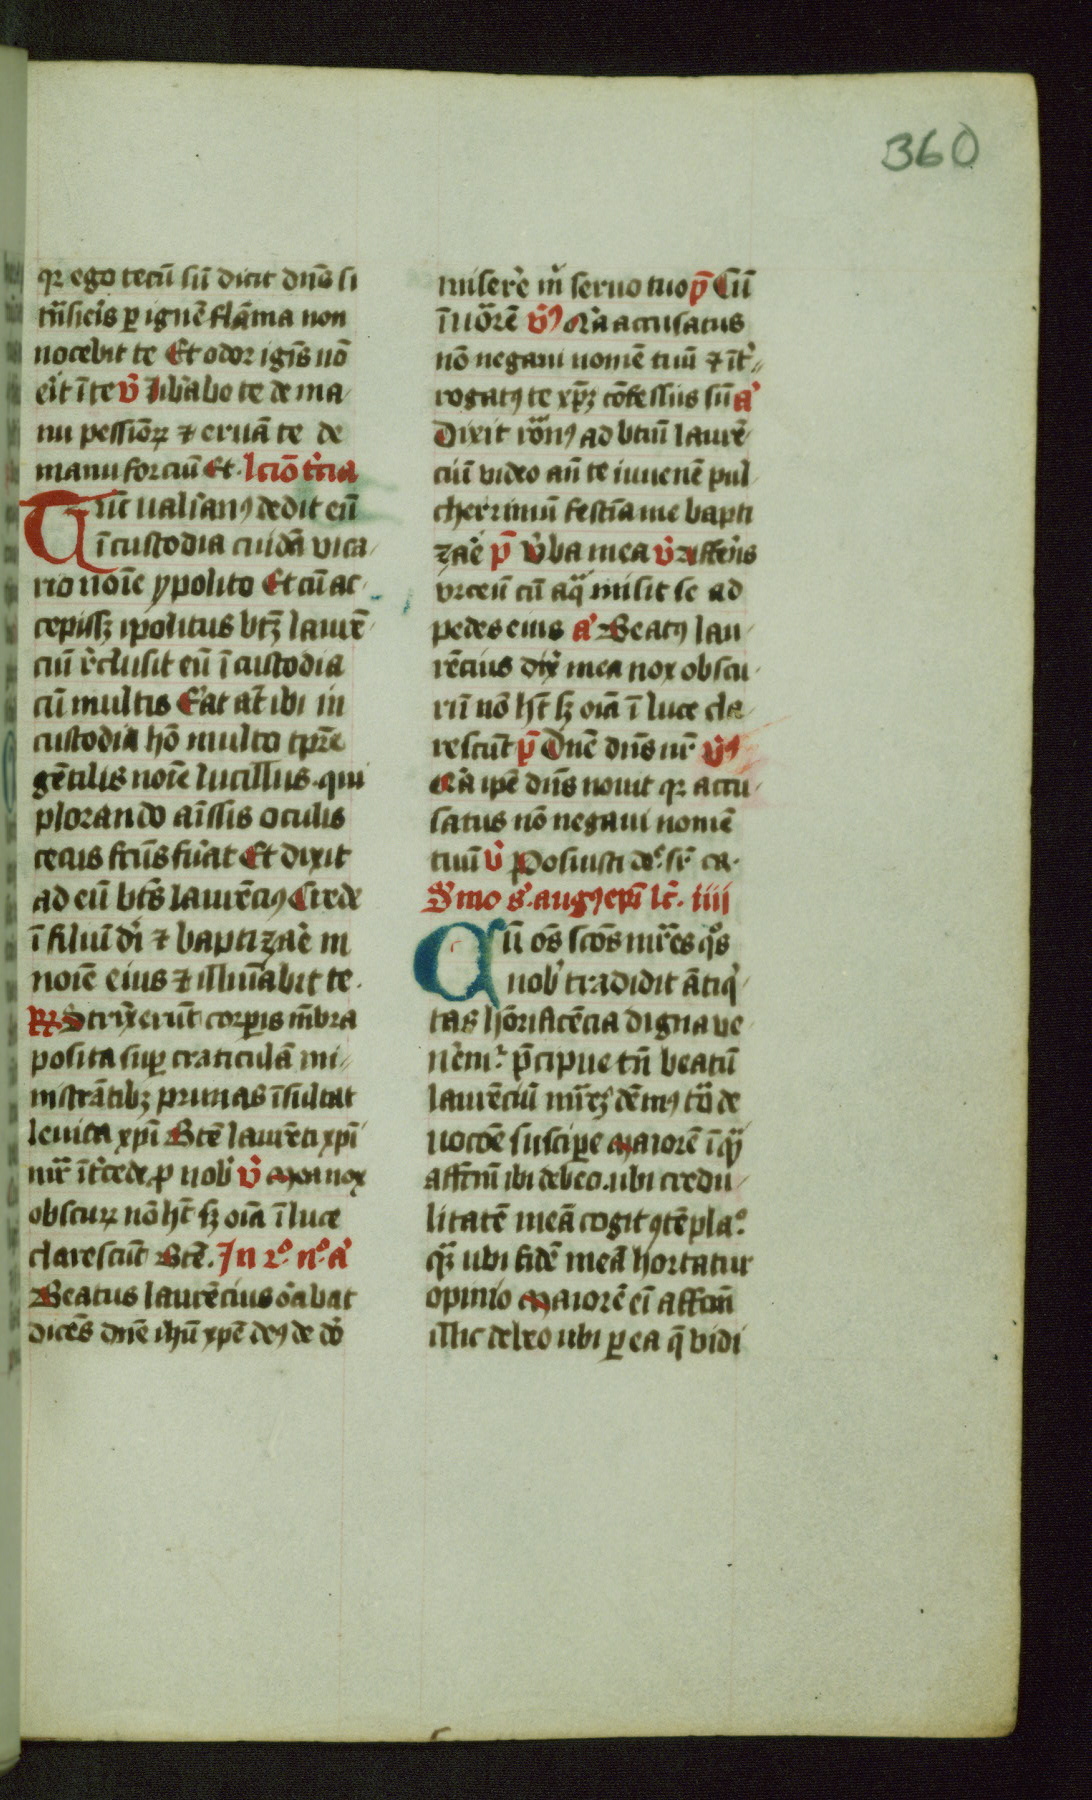 360
qr ego tecū sū dicit dns̄ si
tn̄sieris p ignē flāma non
nocebit te Et odor ignis nō
erit ī te v̄ Libabo te de ma
nu pessioꝝ ⁊ eruā te de
manu forciū Et. lcīo tercia
Tūc ualerianꝰ dedit eū
ī custodia cuidā vica
rio noīe ypolito Et cū ac
cepissꝫ ipolitus btꝫ laurē
ciū rͥclusit eū ī custodia
cū multis Eͣat at̄ ibi in
custodia hō multo tpr̄e
gētilis noīe lucillus qui
plorando am̄ssis oculis
cecus fcūs fuāt Et dixit
ad eū bts̄ laurēciꝰ Crede
ī filiū dī ⁊ baptizare in
noīe eius ⁊ illuīabit te.
R̄ Strīxerūt corpis mb̄ra
posita suꝑ craticulā mi
nistrātibꝫ prunas īsultat
leuita xpī Btē laurēti xpī
mr̄ īt̄cede ꝓ nobͥ v̄ Mea nox
obscuꝝ nō ht̄ sꝫ oīa ī luce
clarescūt Btē. In 2º nº aͣ
Beatus laurēcius orabat
dicēs dnē ihū xpē deꝰ de dō
miserē mͥ seruo tuo p̄ Cū
īuocarē v̄ꝰ Qͥa accusatus
nō negaui nomē tuū ⁊ īt̄
rogatꝰ te xpꝫ cōfessus sū aͣ
Dixit romanꝰ ad btū laurē
ciū video an̄ te iuuenē pul
cherrimū festīa me bapti
zare p̄ v̄ba mea v̄ Afferēs
vrceū cū aqͣ misit se ad
pedes eius aͣ Beatꝰ lau
rēcius dixͥ mea nox obscu
rū nō ht̄ sꝫ oīa ī luce cla
rescūt p̄ Dnē dns̄ nr̄ v̄ꝰ
Qͥa ipē dns̄ nouit qr accu
satus nō negaui nomē
tuū v̄ Posuisti dē. sr̄ ca.
Smo s. augꝰ epī lc̄. iiii
Cū oēs scōs mr̄es qͦs
nobͥ tradidit ātiqͥ
tas hōrificēcia digna ue
nēmͬ. p̄cipue tn̄ beatū
laurēciū mr̄ēꝫ dēmꝰ tōa de
uocōe suscipe Maiorē ī qͣ
affcm̄ ibi debeo. ubi credu
litatē meā cogit ꝯtēplaº
qͣꝫ ubi fidē meā hortatur
opinio Maiorē eī affcm̄
illic debeo ubi p ea q̄ vidi